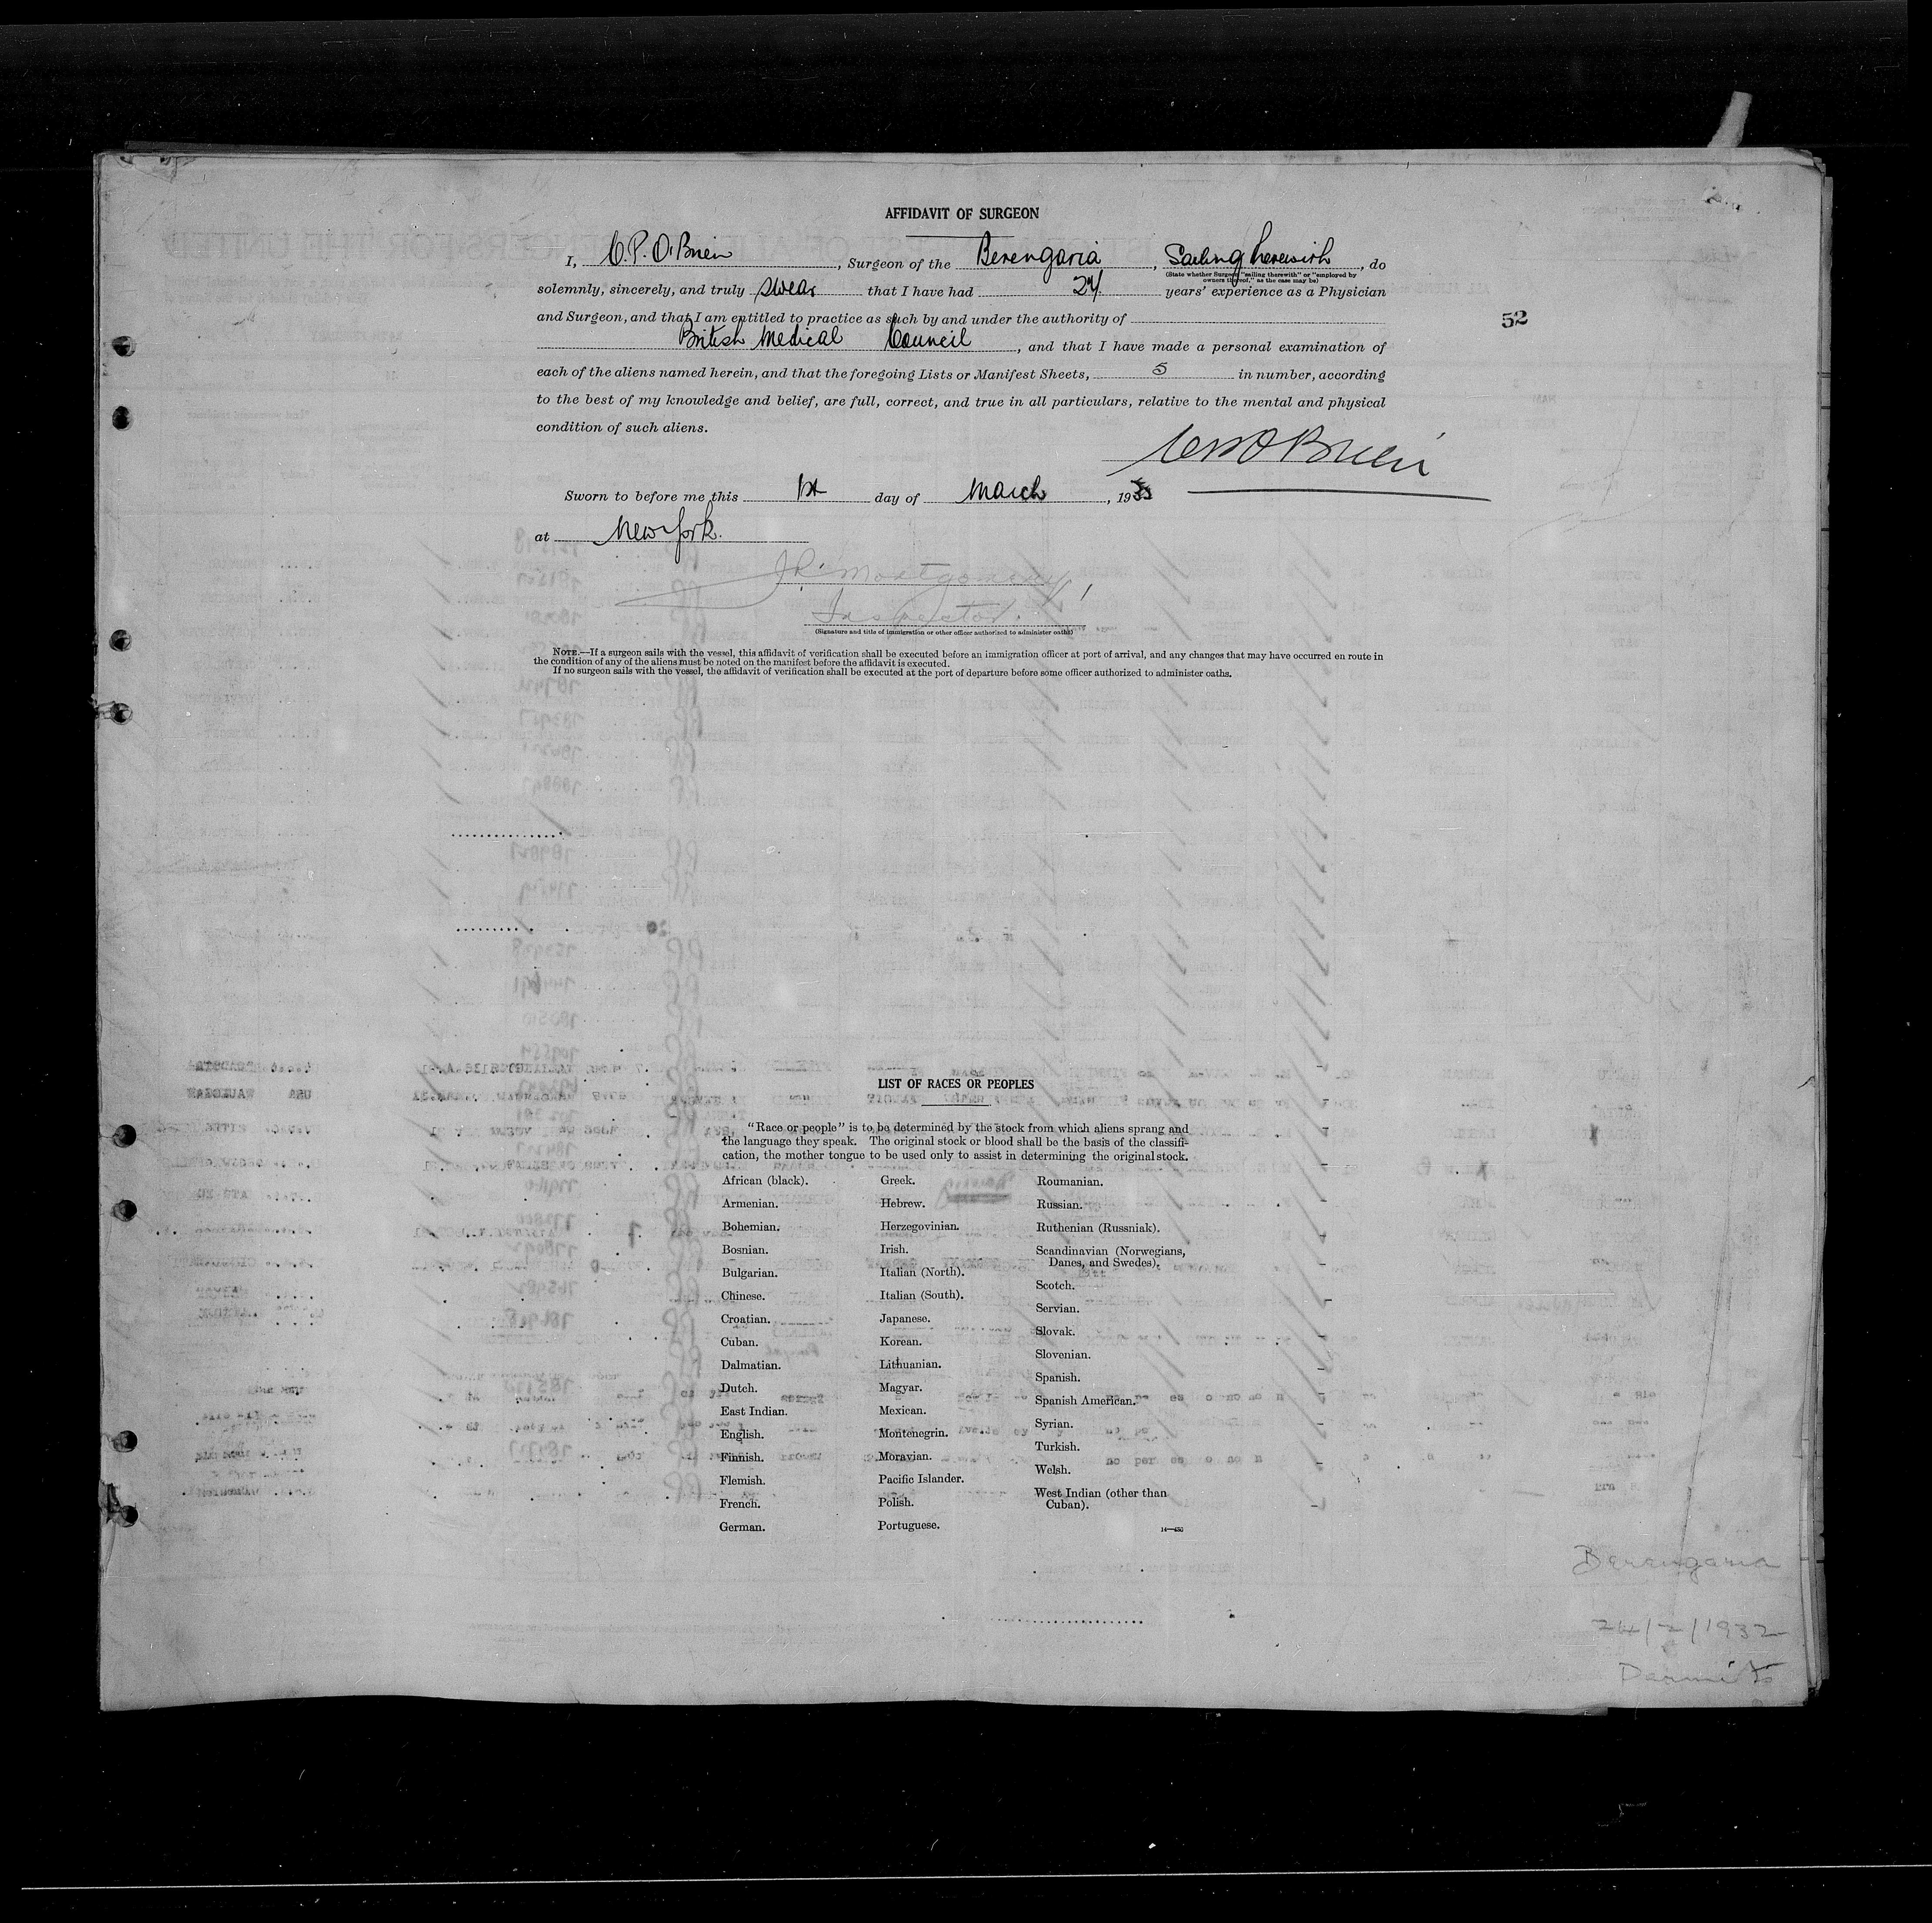 AFFIDAVIT OF SURGEON
I, C. P. O'Brien, Surgeon of the Berengaria, Sailing therewith, do
(State whether Surgeon "sailing therewith" or "employed by
owners thereof," as the case may be)
solemnly, sincerely, and truly swear that I have had 24 years' experience as a Physician
and Surgeon, and that I am entitled to practice as such by and under the authority of
British Medical Council, and that I have made a personal examination of
52
each of the aliens named herein, and that the foregoing Lists or Manifest Sheets, 5 in number, according
to the best of my knowledge and belief, are full, correct, and true in all particulars, relative to the mental and physical
condition of such aliens.
O'Brien
Sworn to before me this 1st day of March, 193
at New York.
J. R. Montgomery
Inspector.
(Signature and title of immigration or other officer authorized to administer oaths)
NOTE.—If a surgeon sails with the vessel, this affidavit of verification shall be executed before an immigration officer at port of arrival, and any changes that may have occurred en route in
the condition of any of the aliens must be noted on the manifest before the affidavit is executed.
If no surgeon sails with the vessel, the affidavit of verification shall be executed at the port of departure before some officer authorized to administer oaths.
LIST OF RACES OR PEOPLES
"Race or people" is to be determined by the stock from which aliens sprang and
the language they speak. The original stock or blood shall be the basis of the classifi-
cation, the mother tongue to be used only to assist in determining the original stock.
African (black).
Armenian.
Bohemian.
Bosnian.
Bulgarian.
Chinese.
Croatian.
Cuban.
Dalmatian.
Dutch.
East Indian.
English.
Finnish.
Flemish.
French.
German.
Greek.
Hebrew.
Herzegovinian.
Irish.
Italian (North).
Italian (South).
Japanese.
Korean.
Lithuanian.
Magyar.
Mexican.
Montenegrin.
Moravian.
Pacific Islander.
Polish.
Portuguese.
Roumanian.
Russian.
Ruthenian (Russniak).
Scandinavian (Norwegians,
Danes, and Swedes).
Scotch.
Servian.
Slovak.
Slovenian.
Spanish.
Spanish American.
Syrian.
Turkish.
Welsh.
West Indian (other than
Cuban).
Berengaria
24/2/1932